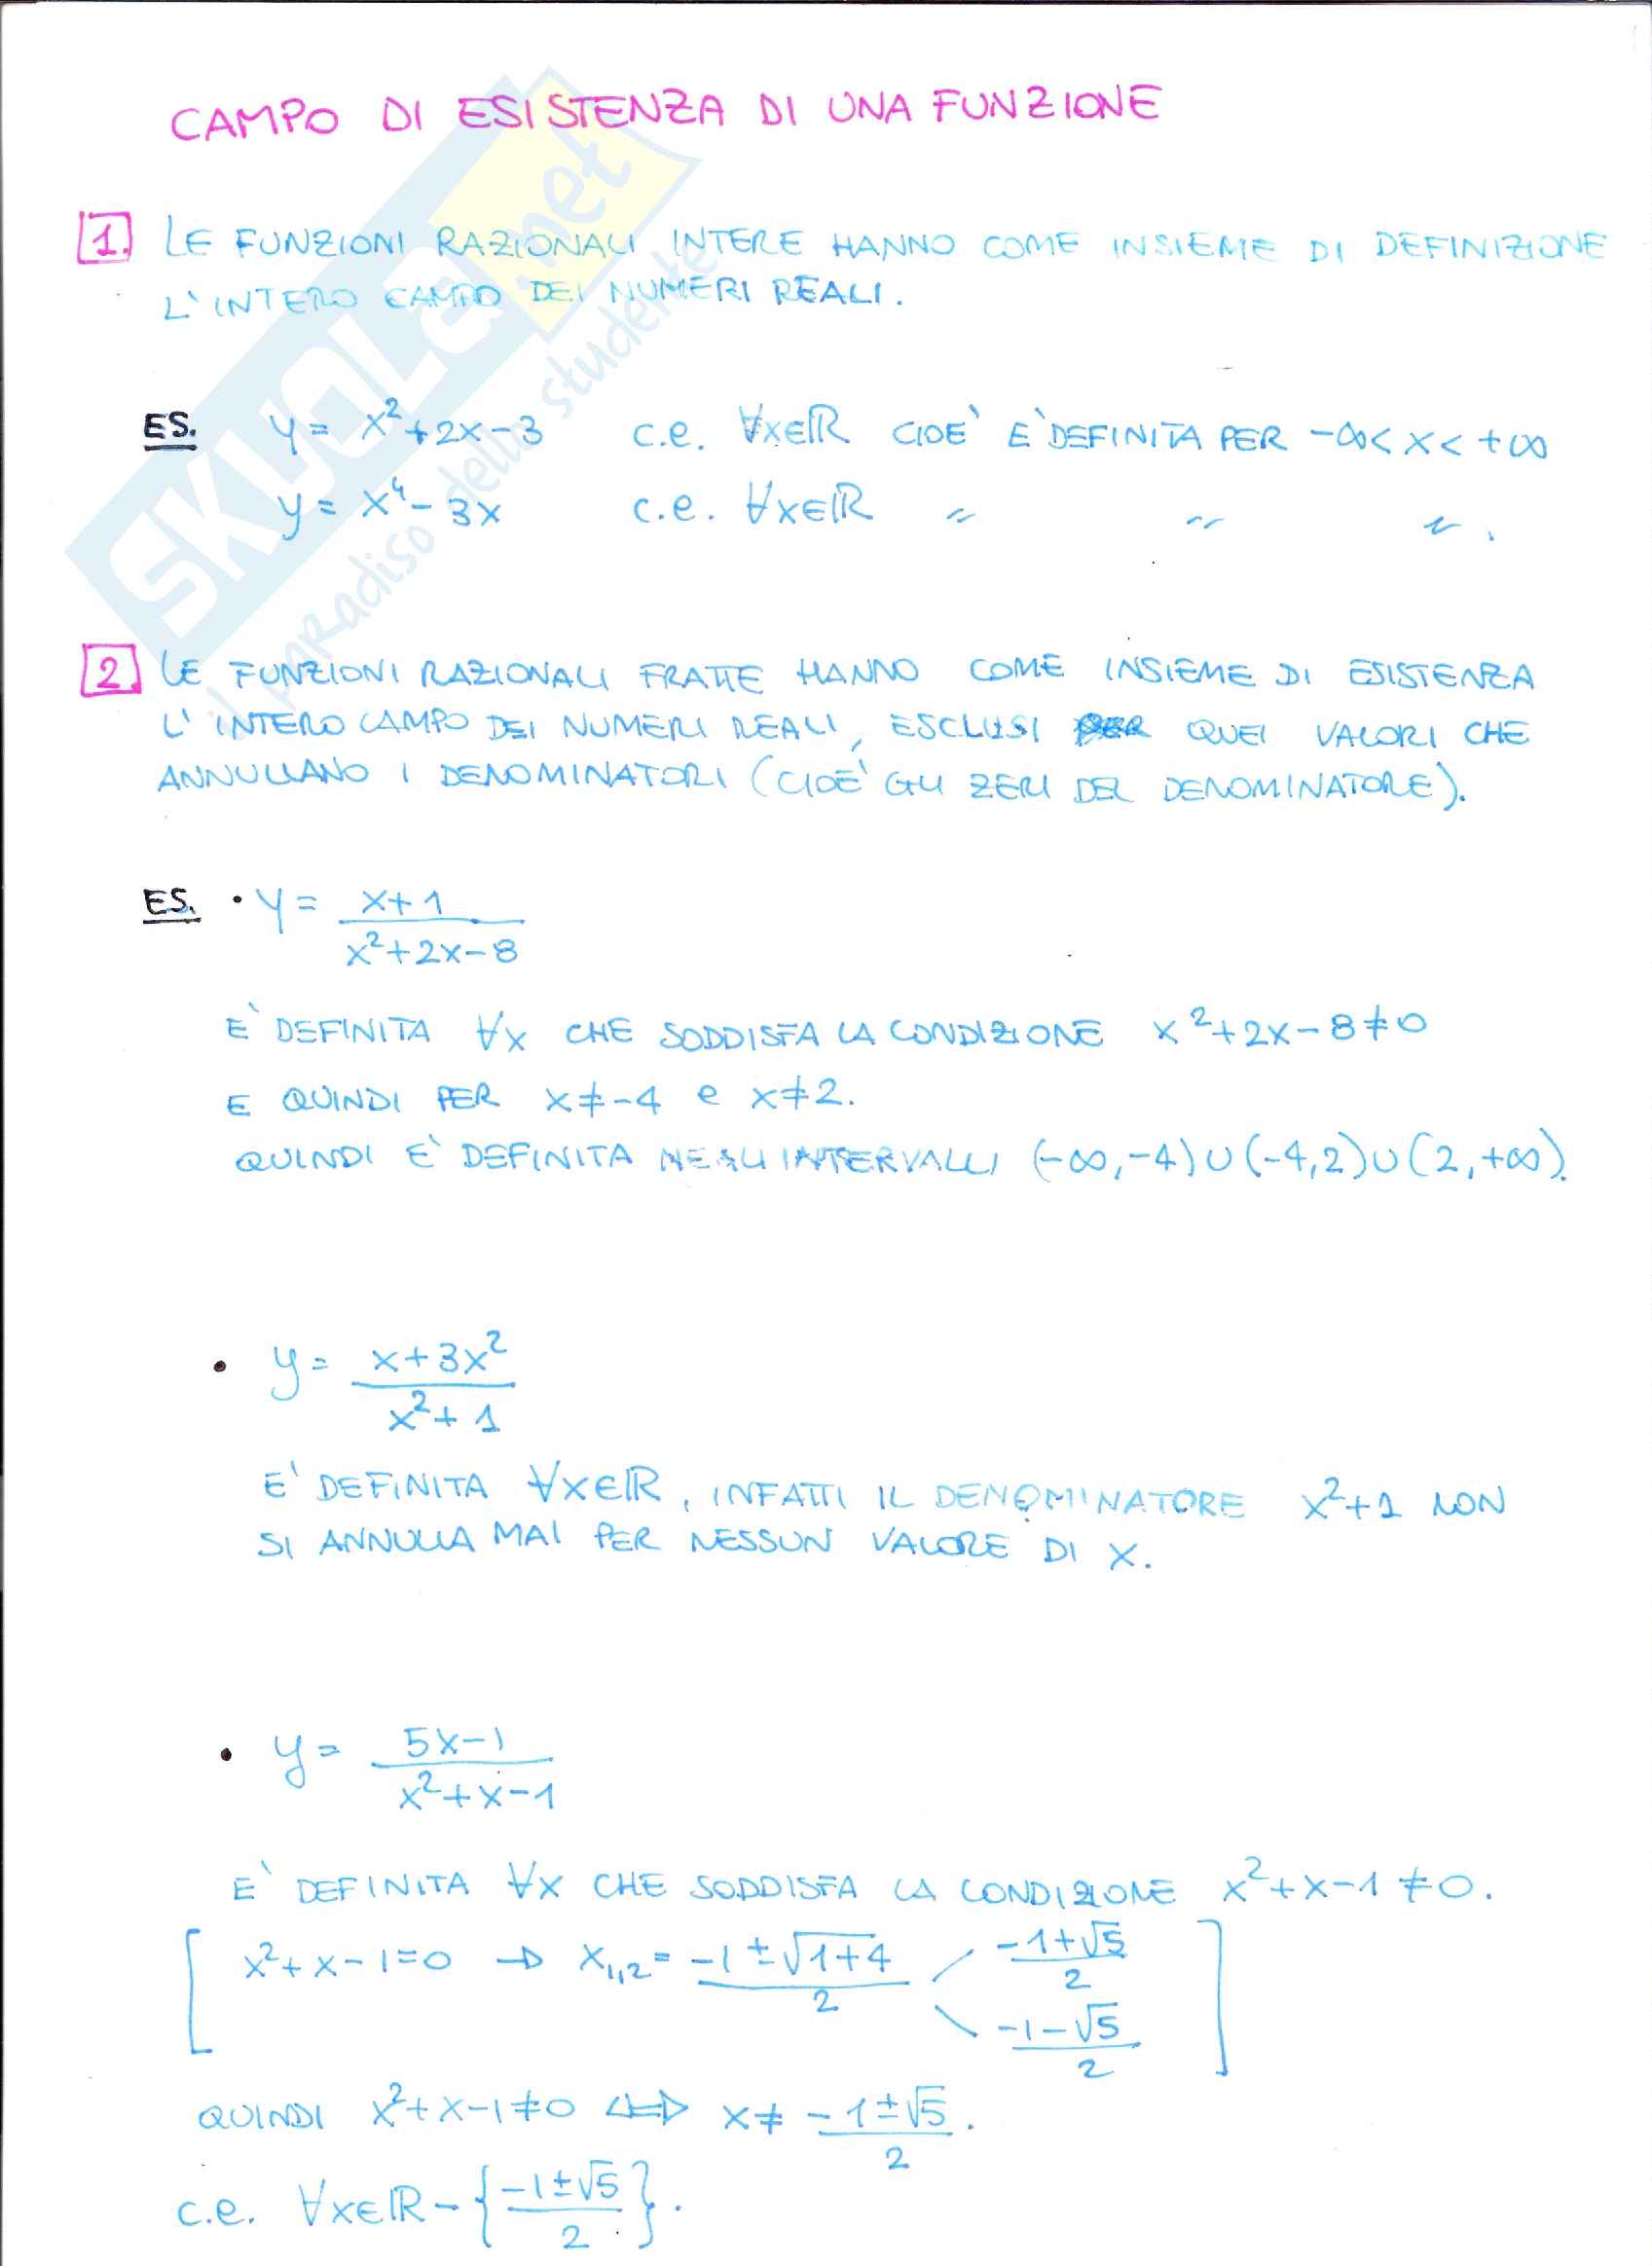 CAMPO DI ESISTENZA DI UNA FUNZIONE
1. LE FUNZIONI RAZIONALI INTERE HANNO COME INSIEME DI DEFINIZIONE
L'INTERO CAMPO DEI NUMERI REALI.
ES. y = x²+2x-3 c.e. ∀x∈ℝ CIOE' E' DEFINITA PER -∞<x<+∞
y = x⁴-3x c.e. ∀x∈ℝ " " ".
2. LE FUNZIONI RAZIONALI FRATTE HANNO COME INSIEME DI ESISTENZA
L'INTERO CAMPO DEI NUMERI REALI, ESCLUSI QUEI VALORI CHE
ANNULLANO I DENOMINATORI (CIOE' GLI ZERI DEL DENOMINATORE).
ES. • y = x+1
x²+2x-8
E' DEFINITA ∀x CHE SODDISFA LA CONDIZIONE x²+2x-8≠0
E QUINDI PER x≠-4 e x≠2.
QUINDI E' DEFINITA NEGLI INTERVALLI (-∞,-4)∪(-4,2)∪(2,+∞).
• y = x+3x²
x²+1
E' DEFINITA ∀x∈ℝ, INFATTI IL DENOMINATORE x²+1 NON
SI ANNULLA MAI PER NESSUN VALORE DI X.
• y = 5x-1
x²+x-1
E' DEFINITA ∀x CHE SODDISFA LA CONDIZIONE x²+x-1≠0.
[ x²+x-1=0 → x₁,₂ = -1±√1+4 / 2 -1+√5 / 2
-1-√5 / 2 ]
QUINDI x²+x-1≠0 ⇔ x≠ -1±√5 / 2.
c.e. ∀x∈ℝ-{-1±√5 / 2}.
SKUOLA.net
il paradiso dello studente